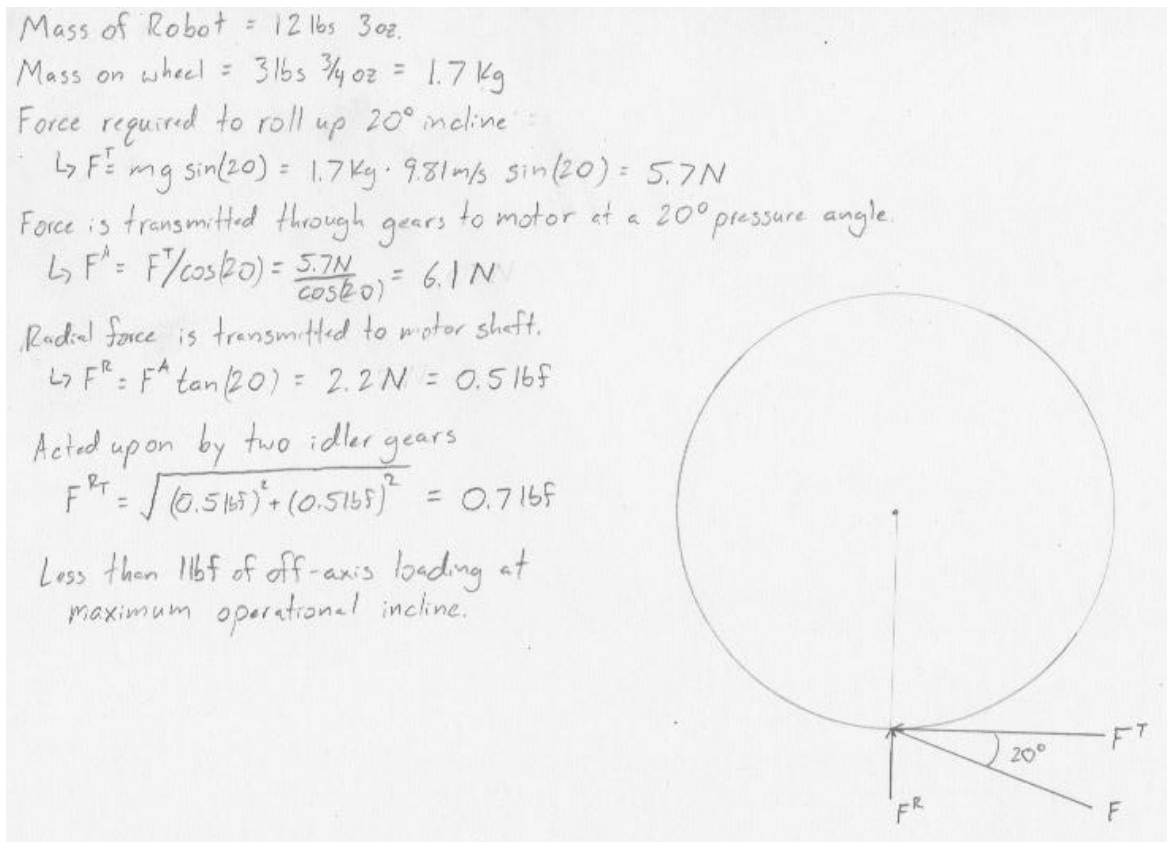 Mass of Robot = 12 lbs 3 oz.
Mass on wheel = 3 lbs 3/4 oz = 1.7 Kg
Force required to roll up 20° incline =
↳ F^T = mg sin(20) = 1.7 Kg · 9.81 m/s sin(20) = 5.7 N
Force is transmitted through gears to motor at a 20° pressure angle.
↳ F^A = F^T/cos(20) = 5.7N/cos(20) = 6.1 N
Radial force is transmitted to motor shaft.
↳ F^R = F^A tan(20) = 2.2 N = 0.5 lbf
Acted upon by two idler gears
F^RT = √((0.5 lbf)² + (0.5 lbf)²) = 0.7 lbf
Less than 1 lbf of off-axis loading at
maximum operational incline.
F^T
20°
F
F^R